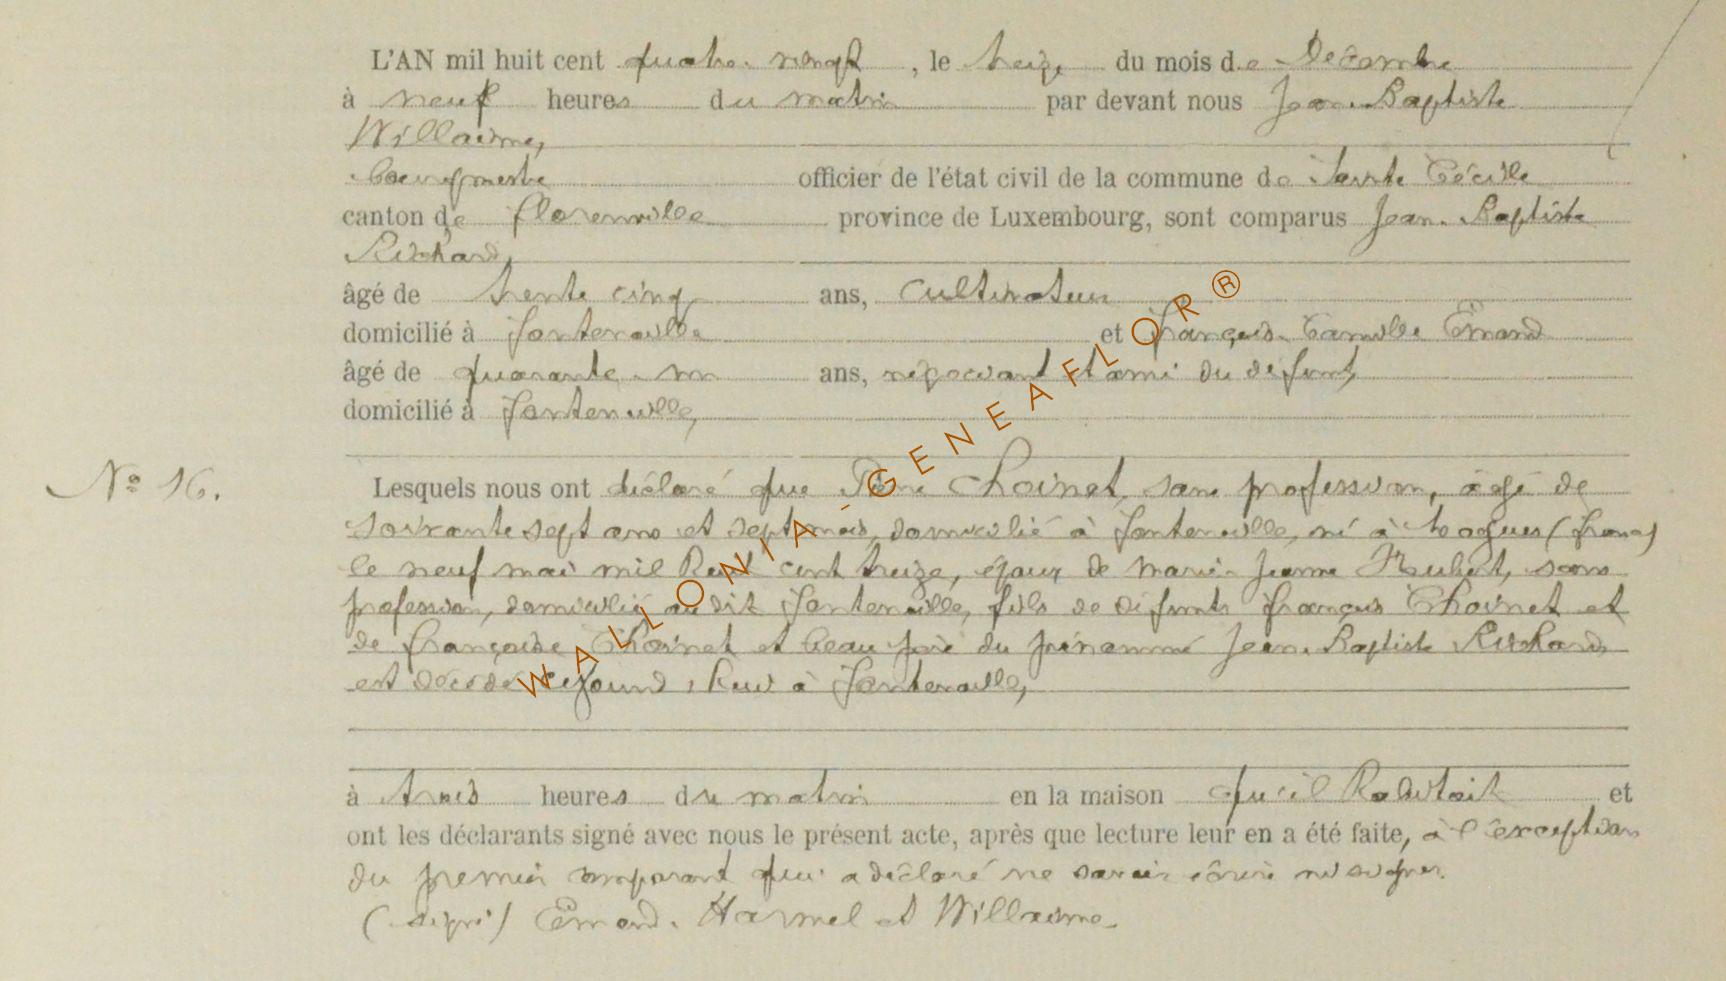 L'AN mil huit cent quatre-vingt, le treize du mois de Décembre
à neuf heures du matin par devant nous Jean-Baptiste
Willaime,
bourgmestre officier de l'état civil de la commune de Sainte Cécile
canton de florenville province de Luxembourg, sont comparus Jean-Baptiste
Richard,
âgé de trente cinq ans, Cultivateur
domicilié à fontenoille et françois-Camille Émond
âgé de quarante-un ans, négociant et ami du défunt,
domicilié à fontenoille,
No 16.
Lesquels nous ont déclaré que Pierre Choinet, sans profession, âgé de
soixante sept ans et sept mois, domicilié à fontenoille, né à Mogues (france)
le neuf mai mil huit cent treize, époux de Marie-Jeanne Hubert, sans
profession, domicilié au dit fontenoille, fils de défunts françois Choinet et
de françoise Choinet et beau-père du prénommé Jean-Baptiste Richard,
est décédé cejourd'hui à fontenoille,
à trois heures du matin en la maison qu'il habitait et
ont les déclarants signé avec nous le présent acte, après que lecture leur en a été faite, à l'exception
du premier comparant qui a déclaré ne savoir écrire ni signer.
(signé) Émond. Harmel et Willaime.
WALLONIA-GENEAFLOR®